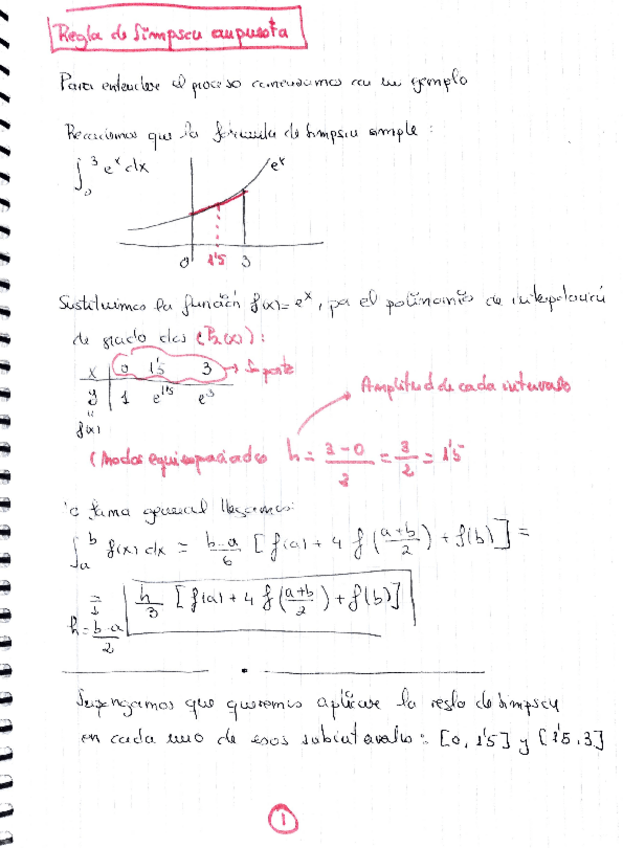 Regla de Simpson compuesta
Para entender el proceso comenzamos con un ejemplo
Recordemos que la fórmula de Simpson simple:
∫₀³ eˣ dx
eˣ
0 1'5 3
Sustituimos la función f(x) = eˣ, por el polinomio de interpolación
de grado dos (P₂(x)):
x | 0 1'5 3 → Soporte
y | 1 e^1'5 e³
"
f(x)
Amplitud de cada intervalo
(Nodos equiespaciados h = (3-0)/2 = 3/2 = 1'5
forma general llegamos:
∫ₐᵇ f(x) dx = (b-a)/6 [f(a) + 4 f((a+b)/2) + f(b)] =
= h/3 [f(a) + 4 f((a+b)/2) + f(b)]
↓
h = (b-a)/2
Supongamos que queremos aplicar la regla de Simpson
en cada uno de esos subintervalos: [0, 1'5] y [1'5, 3]
1